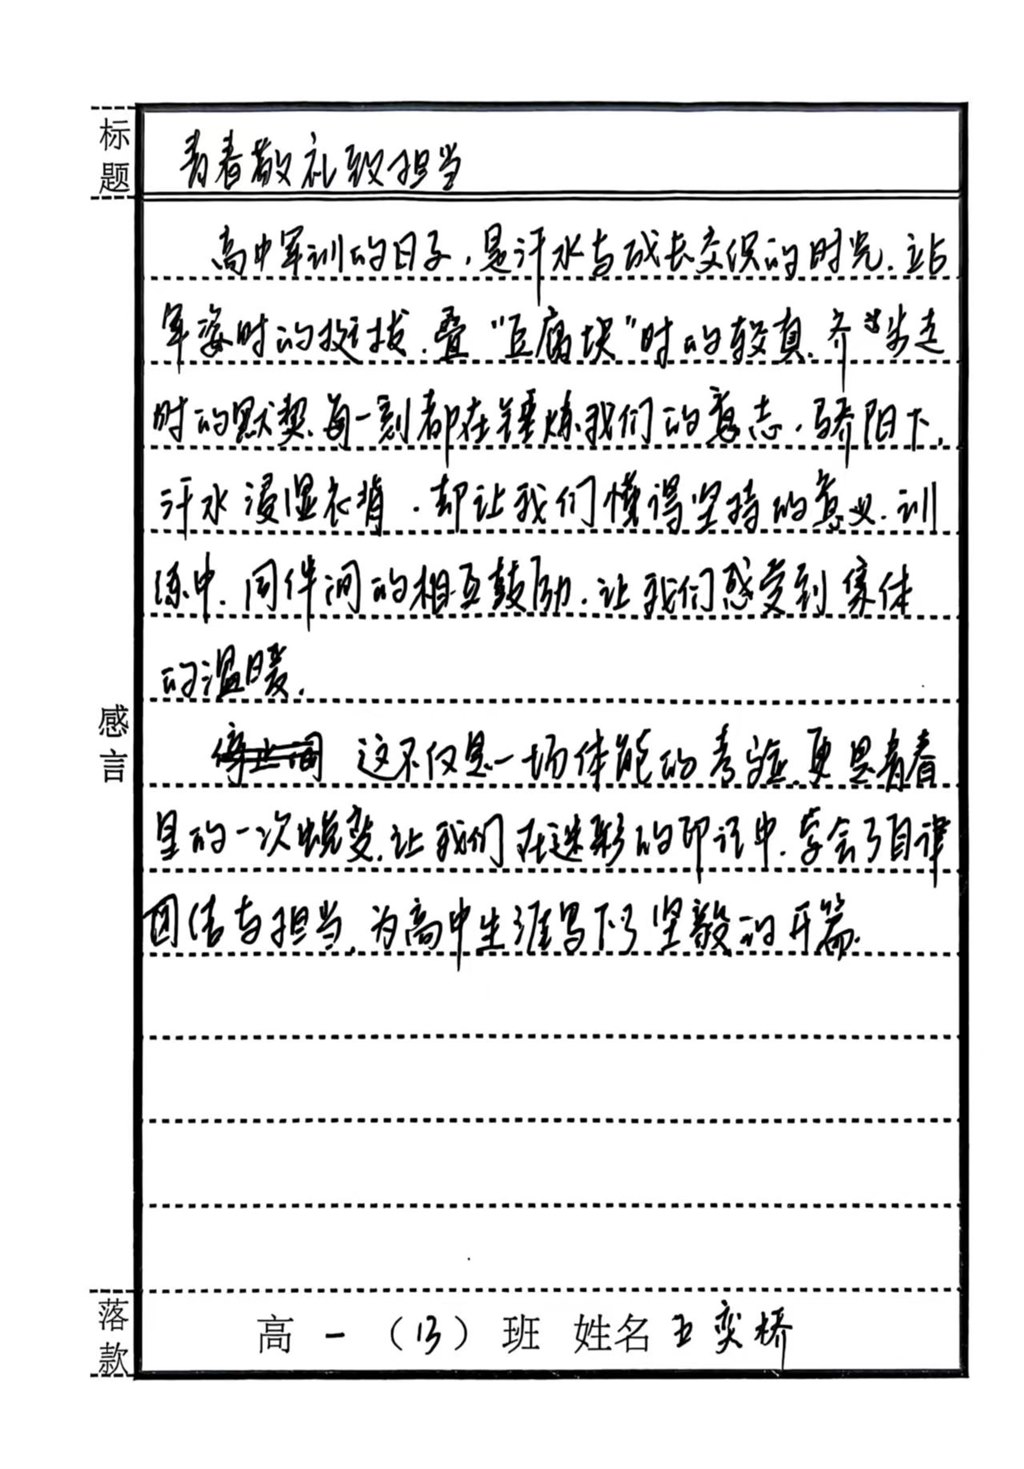 标题
青春敬礼致担当
高中军训的日子，是汗水与成长交织的时光。站
军姿时的挺拔，叠“豆腐块”时的较真，齐步走
时的默契，每一刻都在锤炼我们的意志。骄阳下，
汗水浸湿衣背，却让我们懂得坚持的意义。训
练中，同伴间的相互鼓励，让我们感受到集体
的温暖。
感言
这不仅是一场体能的考验，更是青春
里的一次蜕变，让我们在迷彩的印记中，学会了自律
团结与担当，为高中生涯写下了坚毅的开篇。
落款
高一（13）班 姓名 王奕桥